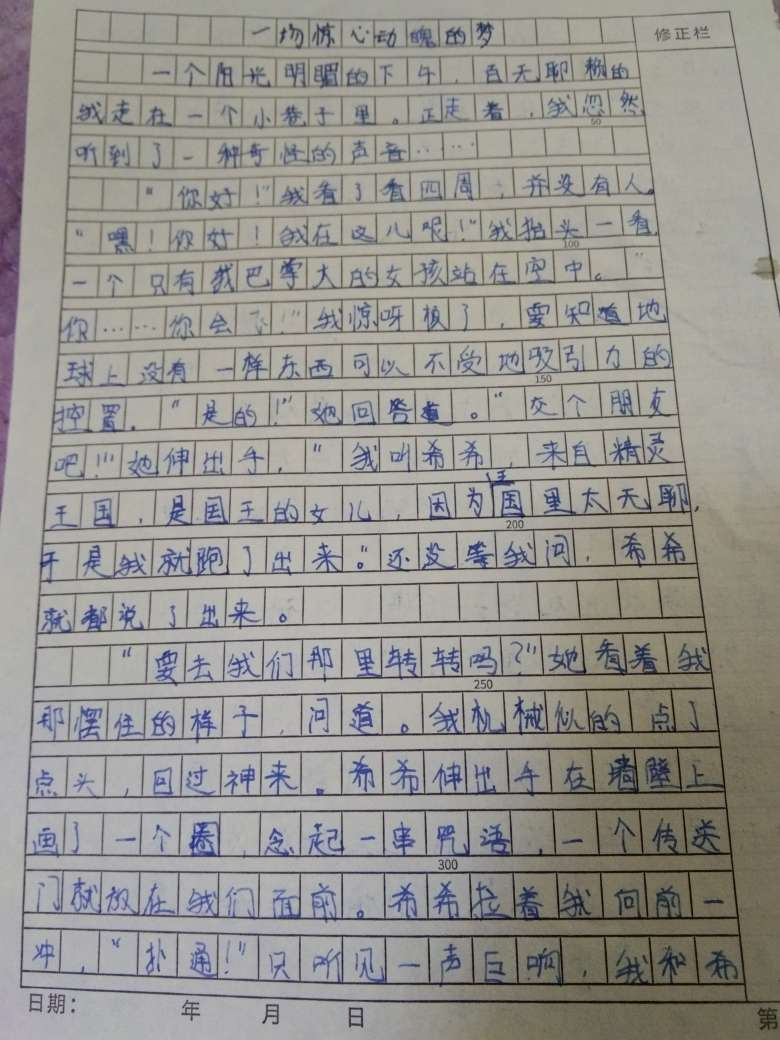 一场惊心动魄的梦
修正栏
一个阳光明媚的下午，百无聊赖的
我走在一个小巷子里。正走着，我忽然
50
听到了一种奇怪的声音……
“你好！”我看了看四周，并没有人。
“嘿！你好！我在这儿呢！”我抬头一看，
100
一个只有我巴掌大的女孩站在空中。“
你……你会飞！”我惊呀极了，要知道地
球上没有一样东西可以不受地吸引力的
150
控置。“是的！”她回答道。“交个朋友
吧！”她伸出手，“我叫希希，来自精灵
王国，是国王的女儿，因为王国里太无聊，
200
于是我就跑了出来。”还没等我问，希希
就都说了出来。
“要去我们那里转转吗？”她看着我
250
那摆住的样子，问道。我机械似的点了
点头，回过神来。希希伸出手在墙壁上
画了一个圈，念起一串咒语，一个传送
300
门就放在我们面前。希希拉着我向前一
冲，“扑通！”只听见一声巨响，我和希
日期： 年 月 日 第